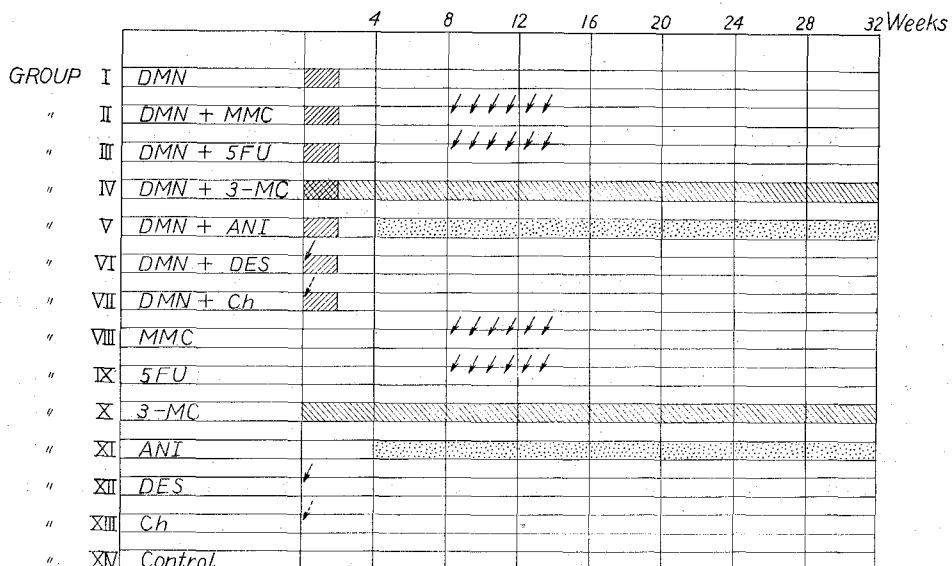 4 8 12 16 20 24 28 32 Weeks
GROUP I DMN
" II DMN + MMC
" III DMN + 5FU
" IV DMN + 3-MC
" V DMN + ANI
" VI DMN + DES
" VII DMN + Ch
" VIII MMC
" IX 5FU
" X 3-MC
" XI ANI
" XII DES
" XIII Ch
" XIV Control